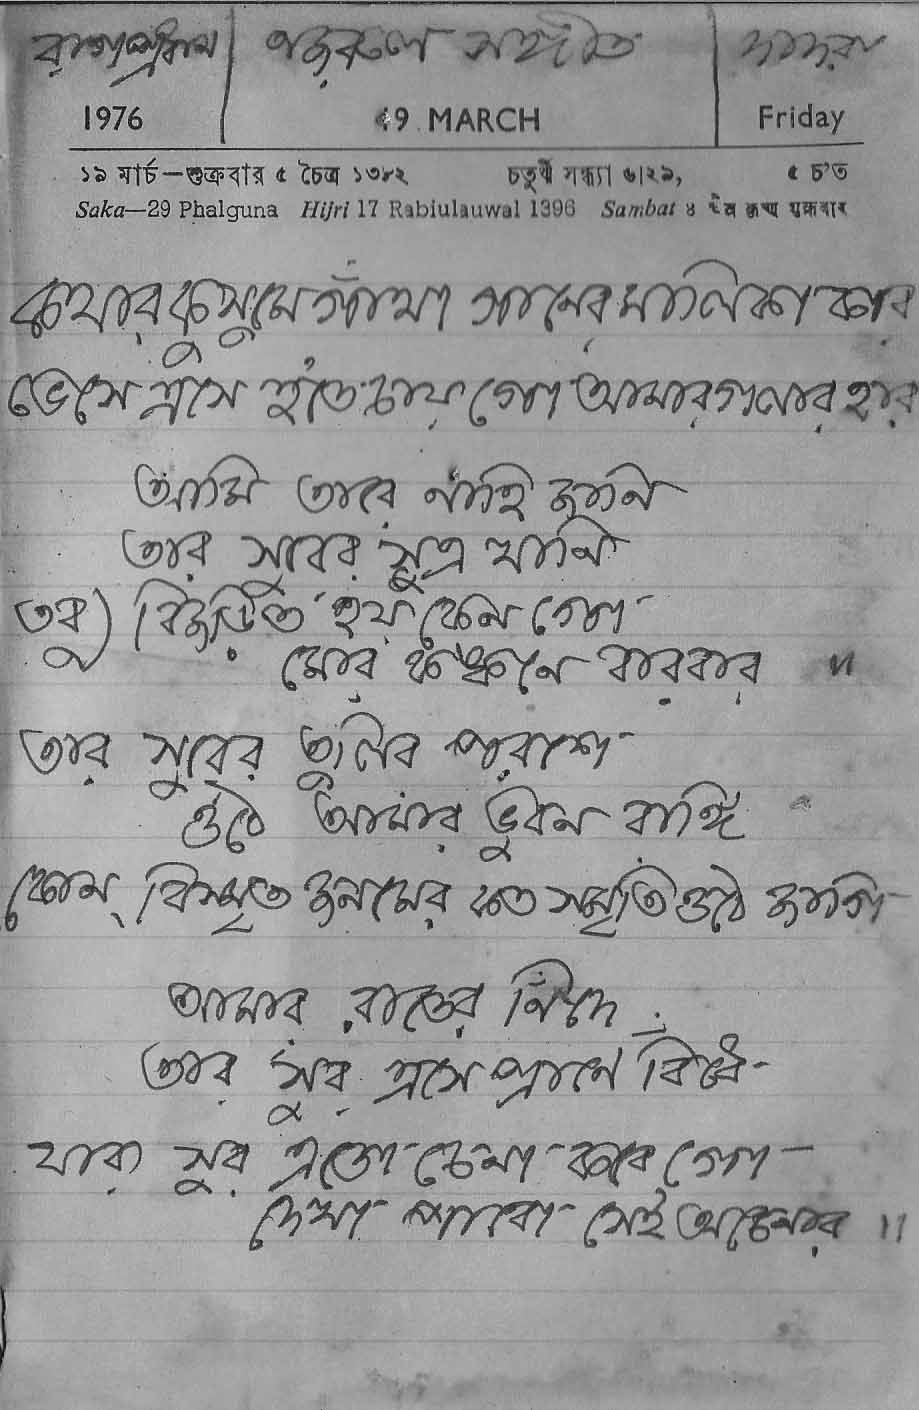 রাগপ্রধান নজরুল সঙ্গীত দাদরা
1976 19 MARCH Friday
১৯ মার্চ—শুক্রবার ৫ চৈত্র ১৩৮২ চতুর্থী সন্ধ্যা ৬।২৯, ৫ চ'ত
Saka—29 Phalguna Hijri 17 Rabiulauwal 1396 Sambat ४ चैत्र कृष्ण शुक्रवार
কথার কুসুমে গাঁথা গানের মালিকা কার
ভেসে এসে হতে চায় গো আমার গলার হার
আমি তারে নাহি জানি
তার সুরের সূত্র খানি
তবু) বিজড়িত হয় কেন গো
মোর কঙ্কনে বারবার ॥
তার সুরের তুলির পরশে
ওঠে আমার ভুবন রাঙ্গি
কোন্ বিস্মৃত জনমের কত স্মৃতি ওঠে জাগি
আমার রাতের নিঁদে
তার সুর এসে প্রাণে বিঁধে
যার সুর এতো চেনা কবে গো
দেখা পাবো সেই অচেনার ॥